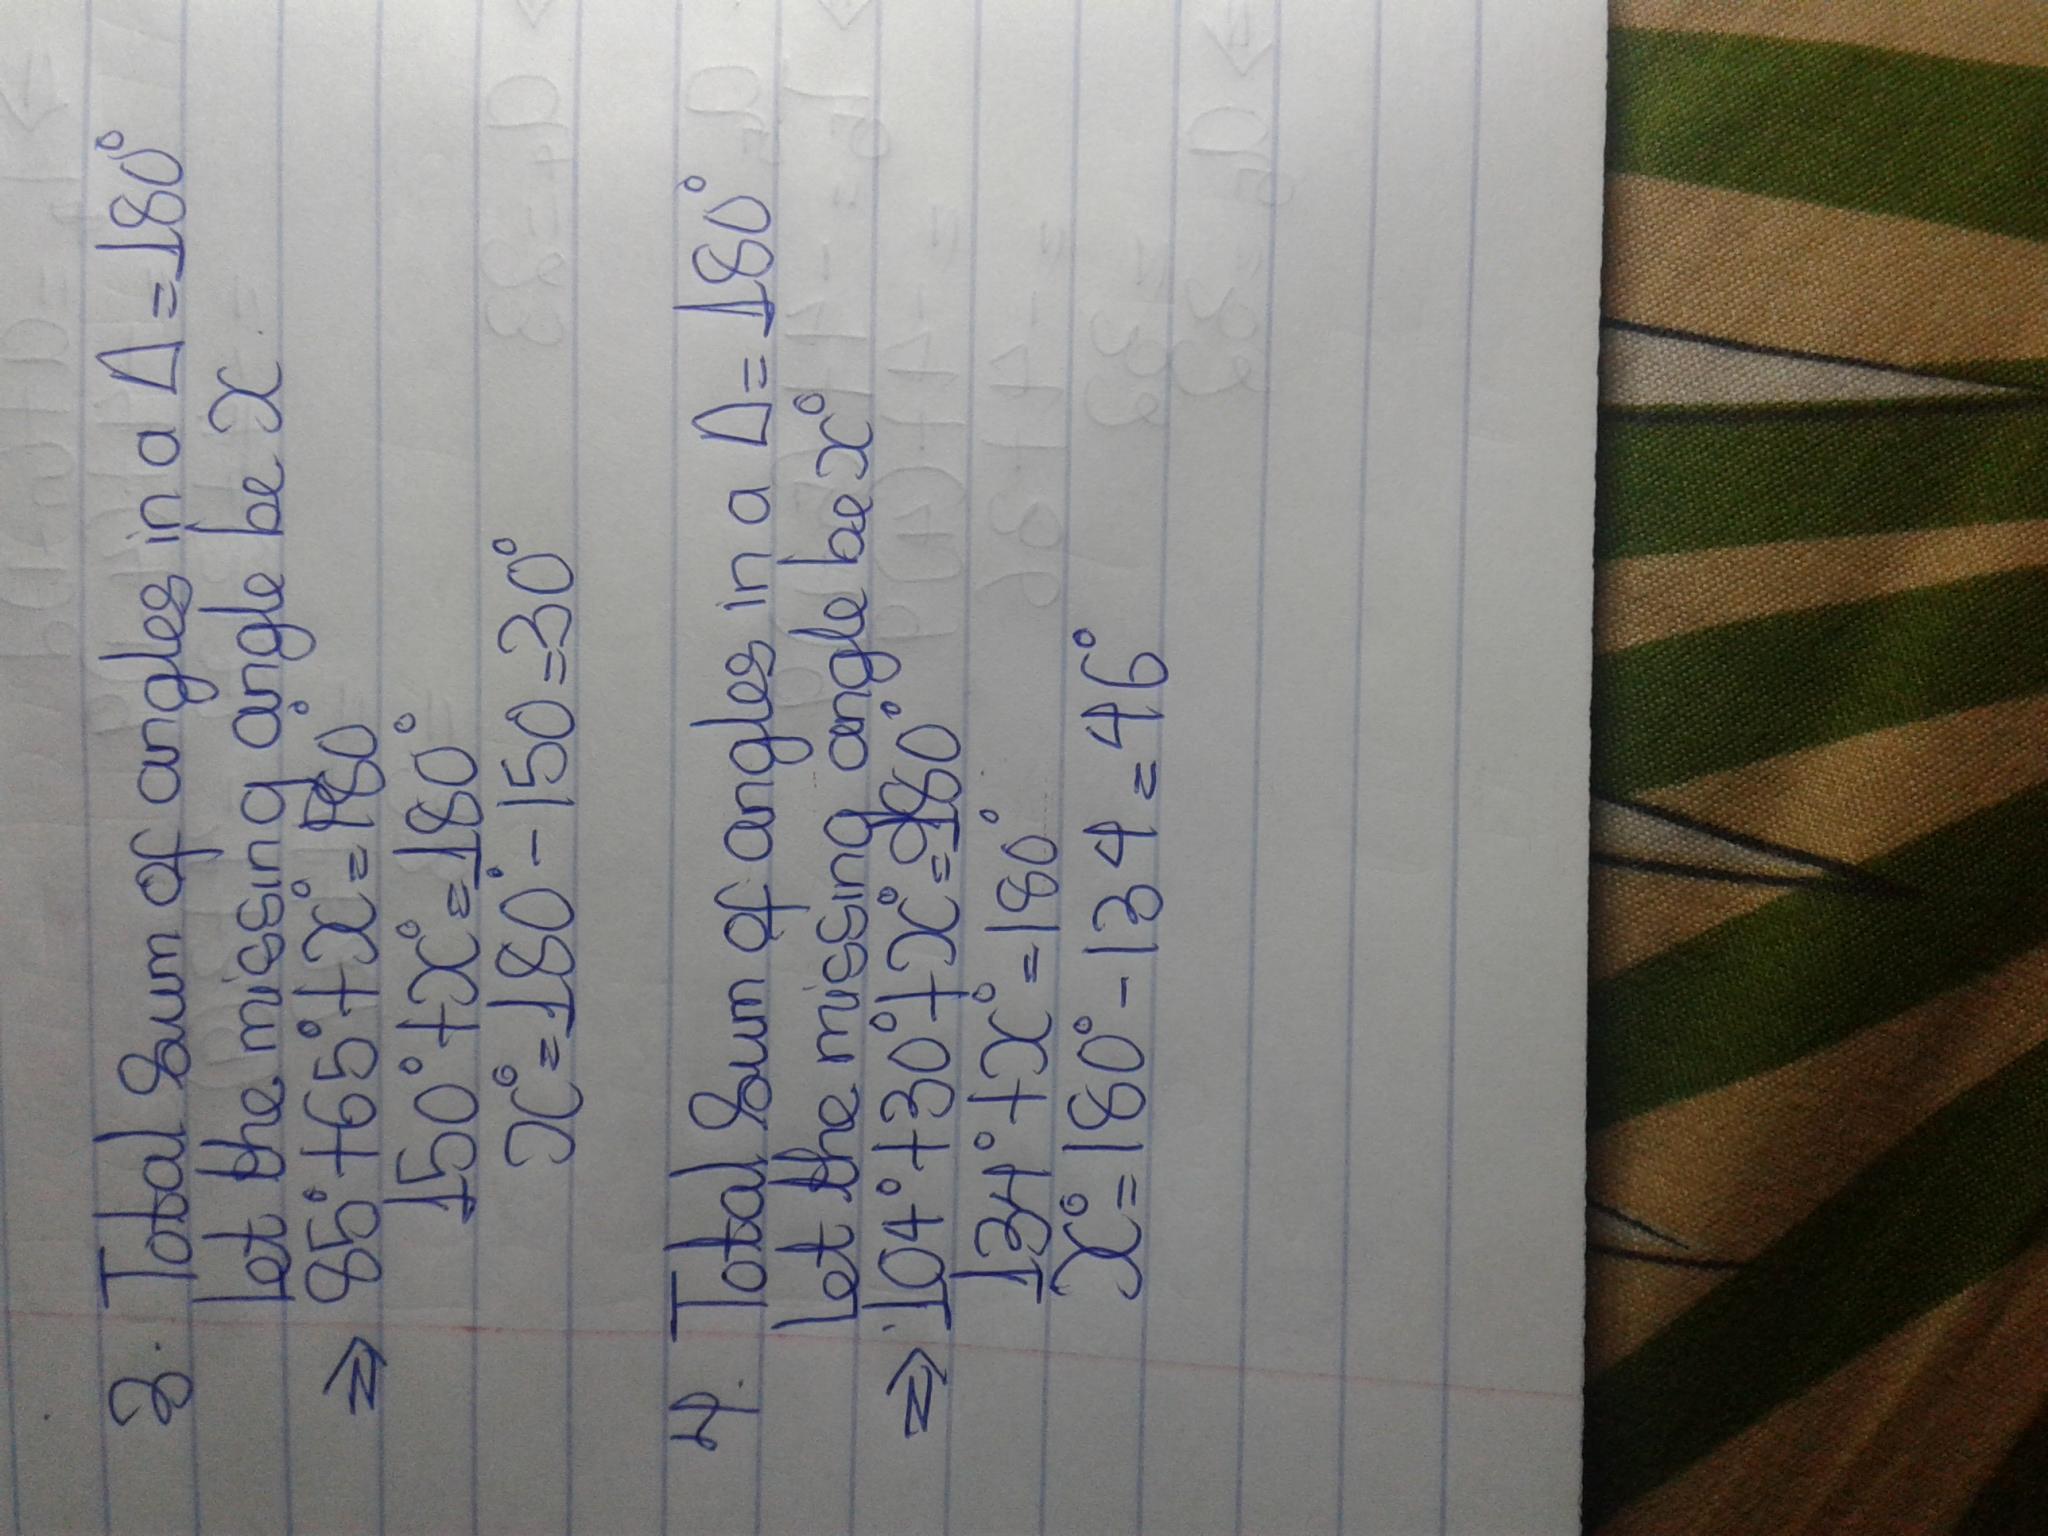 3. Total Sum of angles in a Δ = 180°
Let the missing angle be x
⇒ 85° + 65° + x° = 180°
150° + x° = 180°
x° = 180° - 150 = 30°
4. Total Sum of angles in a Δ = 180°
Let the missing angle be x°
⇒ 104° + 30° + x° = 180°
134° + x° = 180°
x° = 180° - 134 = 46°